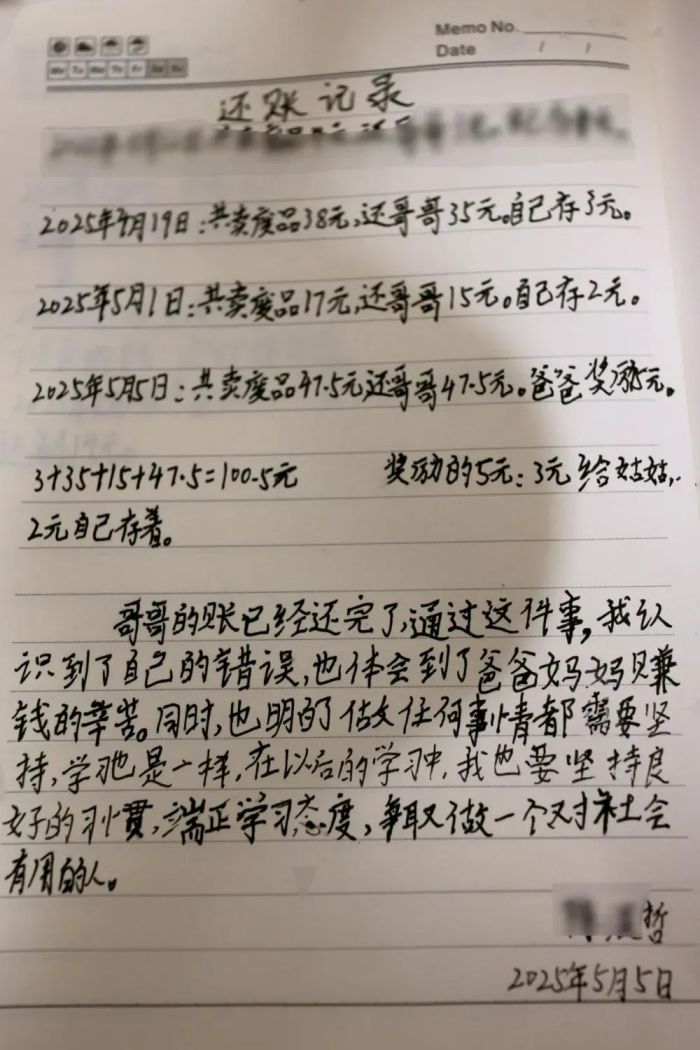 Memo No.
Date / /
Mo Tu We Th Fr Sa Su
还账记录
2025年4月19日:共卖废品38元,还哥哥35元。自己存3元。
2025年5月1日:共卖废品17元,还哥哥15元。自己存2元。
2025年5月5日:共卖废品47.5元还哥哥47.5元。爸爸奖励5元。
3+35+15+47.5=100.5元 奖励的5元:3元给姑姑,
2元自己存着。
哥哥的账已经还完了,通过这件事,我认
识到了自己的错误,也体会到了爸爸妈妈赚
钱的辛苦。同时,也明的做任何事情都需要坚
持,学习也是一样,在以后的学习中,我也要坚持良
好的习惯,端正学习态度,争取做一个对社会
有用的人。
哲
2025年5月5日